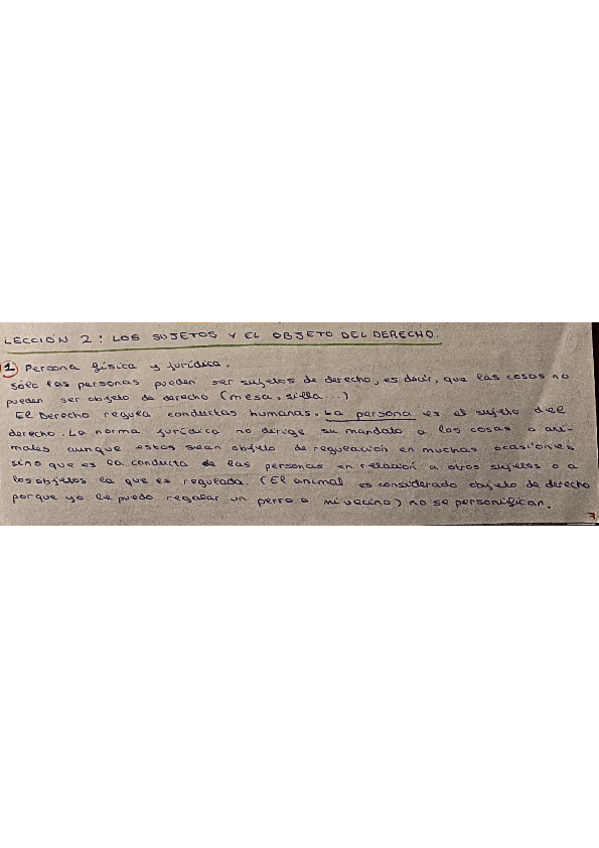 LECCIÓN 2: LOS SUJETOS Y EL OBJETO DEL DERECHO.
1 Persona física y jurídica.
Sólo las personas pueden ser sujetos de derecho, es decir, que las cosas no
pueden ser objeto de derecho (mesa, silla...)
El Derecho regula conductas humanas. La persona es el sujeto del
derecho. La norma jurídica no dirige su mandato a las cosas o ani-
males aunque estos sean objeto de regulación en muchas ocasiones,
sino que es la conducta de las personas en relación a otros sujetos o a
los objetos la que es regulada. (El animal es considerado objeto de derecho
porque yo le puedo regalar un perro a mi vecino) no se personifican.
7